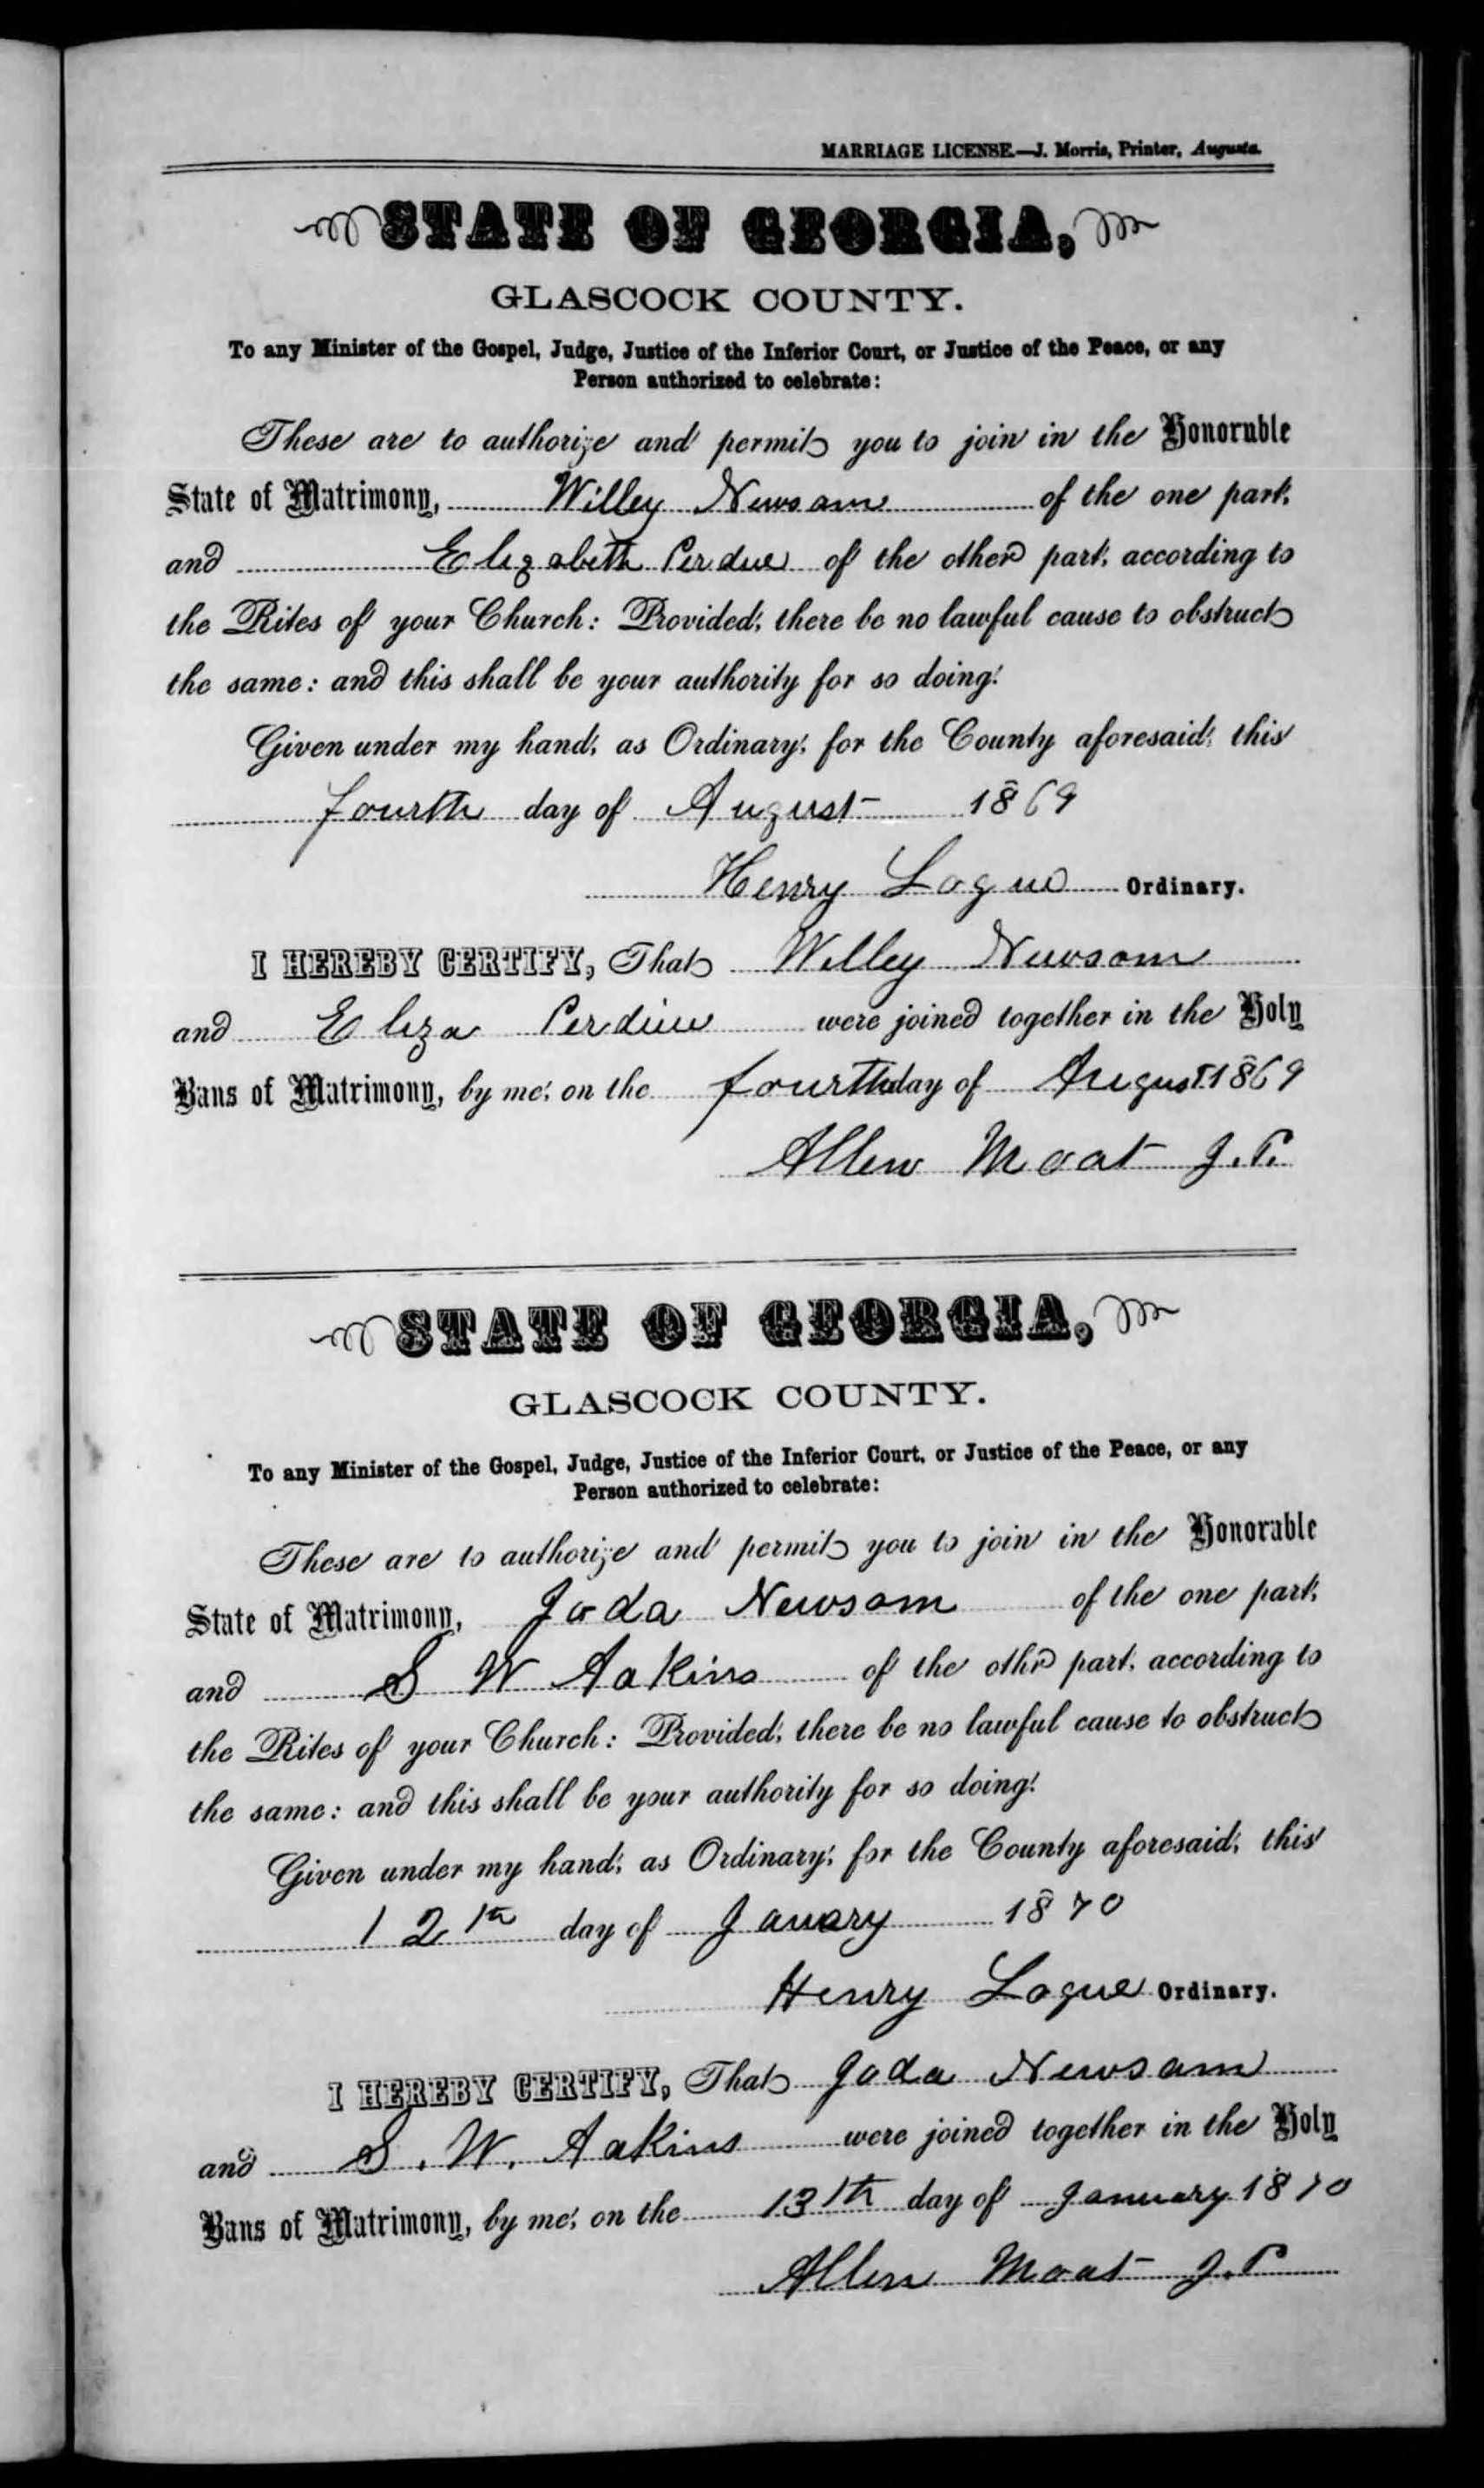 MARRIAGE LICENSE.—J. Morris, Printer, Augusta.
STATE OF GEORGIA,
GLASCOCK COUNTY.
To any Minister of the Gospel, Judge, Justice of the Inferior Court, or Justice of the Peace, or any
Person authorized to celebrate:
These are to authorize and permit you to join in the Honorable
State of Matrimony, Willey Newsom of the one part,
and Elizabeth Perdue of the other part, according to
the Rites of your Church: Provided, there be no lawful cause to obstruct
the same: and this shall be your authority for so doing.
Given under my hand, as Ordinary, for the County aforesaid, this
fourth day of August 1869
Henry Logue Ordinary.
I HEREBY CERTIFY, That Willey Newsom
and Eliza Perdue were joined together in the Holy
Bans of Matrimony, by me, on the fourth day of August 1869
Allen Moat J.P.
STATE OF GEORGIA,
GLASCOCK COUNTY.
To any Minister of the Gospel, Judge, Justice of the Inferior Court, or Justice of the Peace, or any
Person authorized to celebrate:
These are to authorize and permit you to join in the Honorable
State of Matrimony, Joda Newsom of the one part,
and S W Aakins of the othr part, according to
the Rites of your Church: Provided, there be no lawful cause to obstruct
the same: and this shall be your authority for so doing.
Given under my hand, as Ordinary, for the County aforesaid, this
12th day of Janary 1870
Henry Logue Ordinary.
I HEREBY CERTIFY, That Joda Newsom
and S. W. Aakins were joined together in the Holy
Bans of Matrimony, by me, on the 13th day of January 1870
Allen Moat J.P